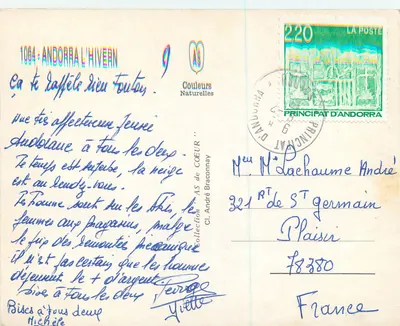 1064 - ANDORRA L'HIVERN
AS
Couleurs
Naturelles
2.20
LA POSTE
PRINCIPAT D'ANDORRA
PRINCIPAT D'ANDORRA
Collection "AS de COEUR"
Cl. André Braconnay
Ça te rappelle bien Tonton.
affectueux
Andorrane à tous les deux.
Le temps est superbe, la neige
est au rendez-vous.
les hommes sont sur les
femmes aux magasins, malgré
le prix des remontées mécaniques
il n'est pas certain que les hommes
dépensent le + d'argent.
Bises à tous les deux
Yvette
Bises à tous deux
Michèle
Mr Mme Lachaume André
221 Rt de St Germain
Plaisir
78380
France